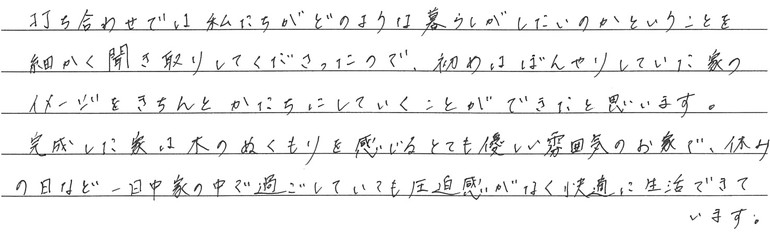 打ち合わせでは私たちがどのような暮らしがしたいのかということを
細かく聞き取りしてくださったので、初めはぼんやりしていた家の
イメージをきちんとかたちにしていくことができたと思います。
完成した家は木のぬくもりを感じるとても優しい雰囲気のお家で、休み
の日など一日中家の中で過ごしていても圧迫感がなく快適に生活できて
います。